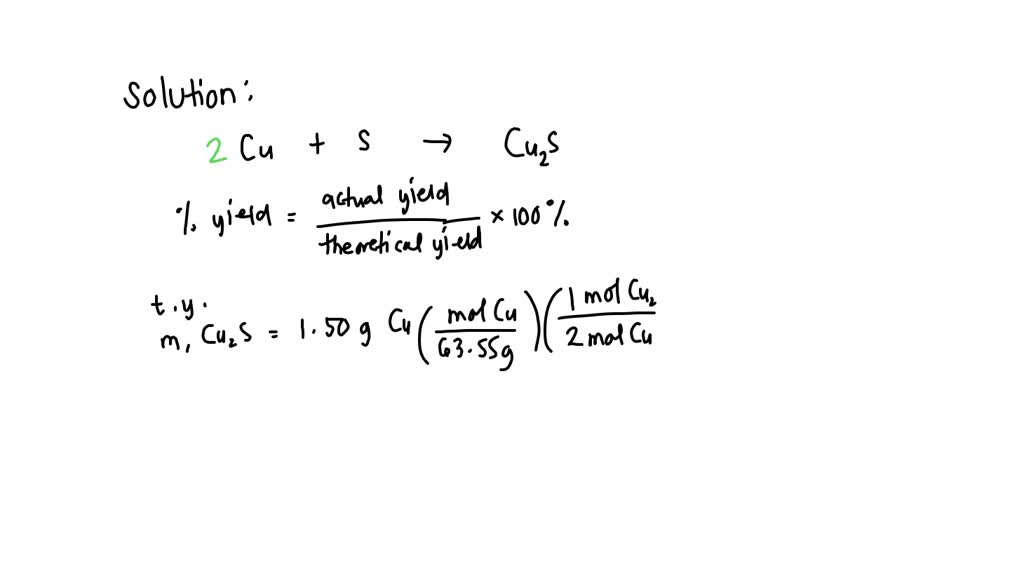 Solution:
2 Cu + S → Cu₂S
% yield = actual yield / theoretical yield × 100%
t.y.
m, Cu₂S = 1.50 g Cu (mol Cu / 63.55g)(1 mol Cu₂ / 2 mol Cu